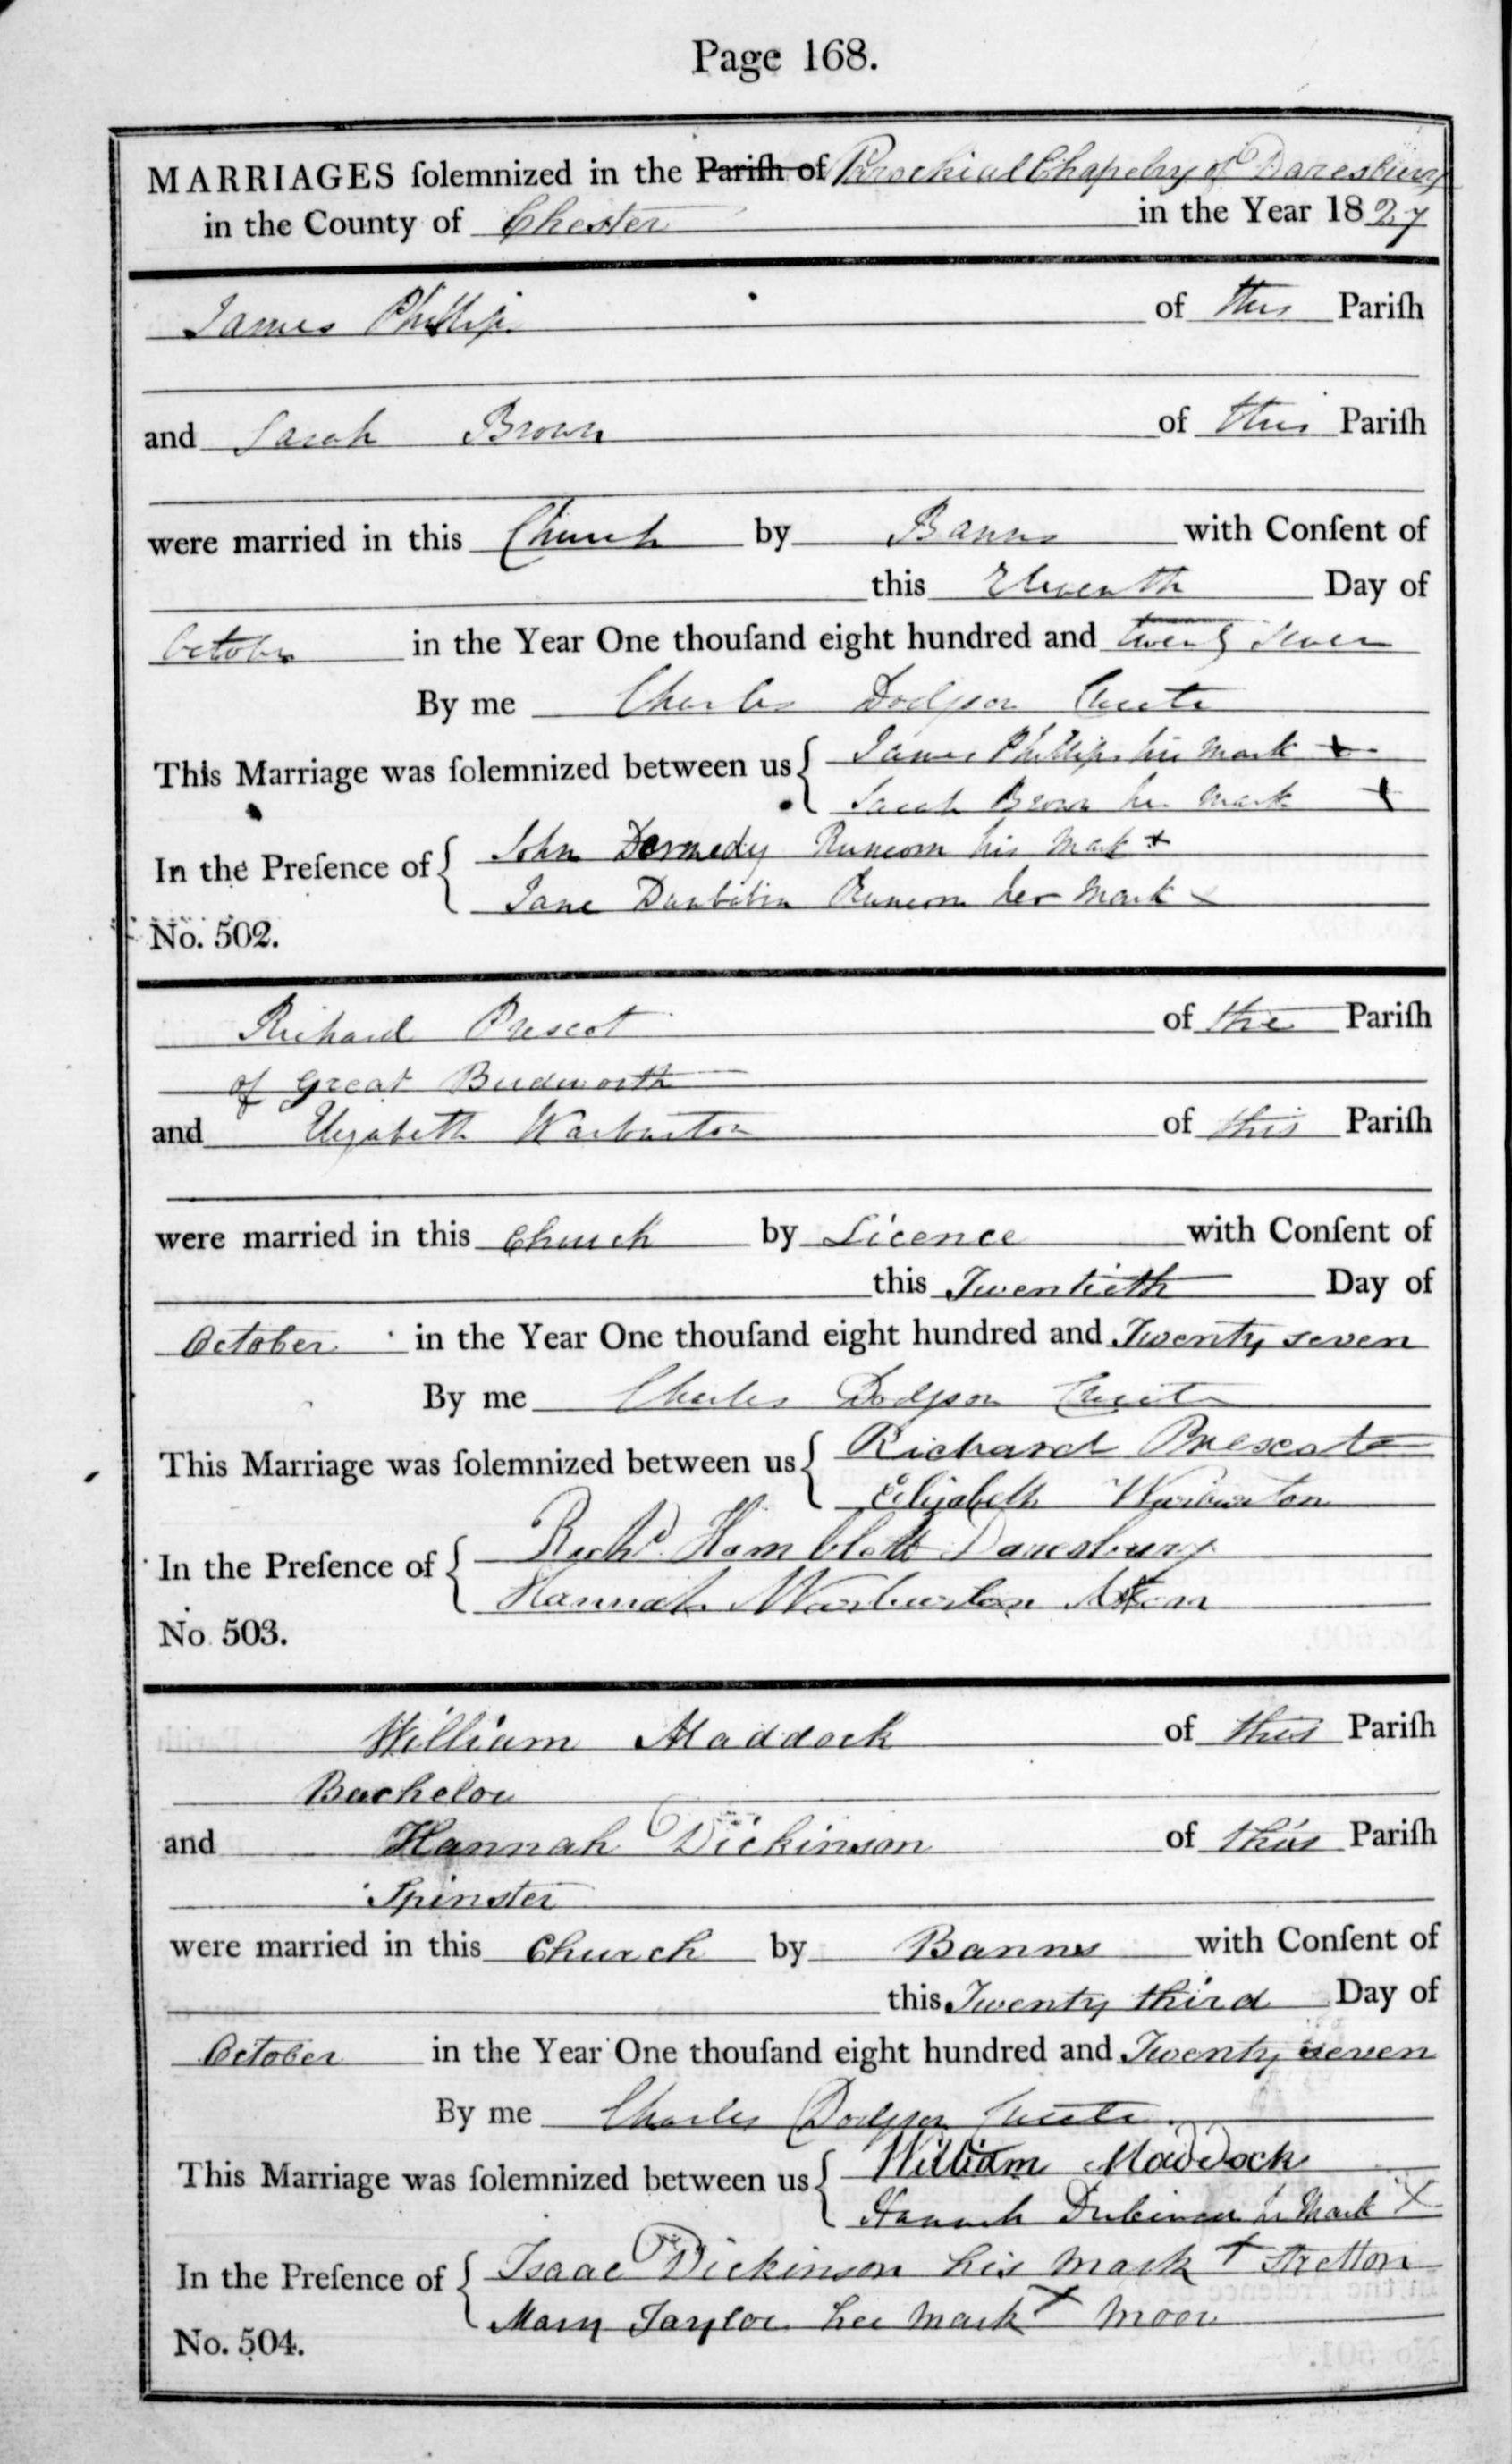 Page 168.
MARRIAGES ſolemnized in the Pariſh of Parochial Chapelry of Daresbury
in the County of Chester in the Year 1827
James Phillips of this Pariſh
and Sarah Brown of this Pariſh
were married in this Church by Banns with Conſent of
this Eleventh Day of
October in the Year One thouſand eight hundred and twenty seven
By me Charles Dodgson
This Marriage was ſolemnized between us { James Phillips his mark +
Sarah Brown her mark +
In the Preſence of { John Runcorn his mark +
Jane Runcorn her mark
No. 502.
Richard Prescot of the Pariſh
of Great Budworth
and Elizabeth Warburton of this Pariſh
were married in this Church by Licence with Conſent of
this Twentieth Day of
October in the Year One thouſand eight hundred and Twenty seven
By me Charles Dodgson
This Marriage was ſolemnized between us { Richard Prescot
Elizabeth Warburton
In the Preſence of { Richd Hamblett Daresbury
Hannah Warburton
No. 503.
William Maddock of this Pariſh
Bachelor
and Hannah Dickinson of this Pariſh
Spinster
were married in this Church by Banns with Conſent of
this Twenty third Day of
October in the Year One thouſand eight hundred and Twenty seven
By me Charles Dodgson
This Marriage was ſolemnized between us { William Maddock
Hannah Dickinson her mark X
In the Preſence of { Isaac Dickinson his mark + Stretton
Mary Taylor her mark X Moor
No. 504.